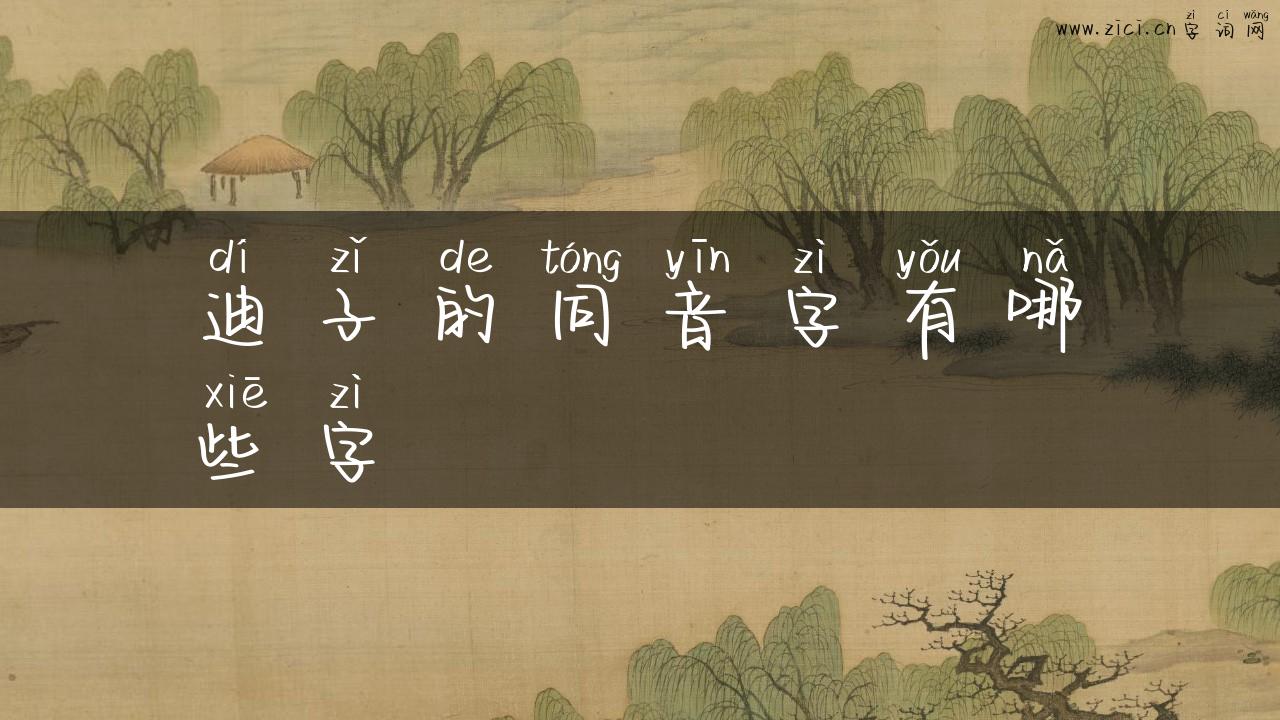 zì cí wǎng
www.zici.cn 字 词 网
dí zǐ de tóng yīn zì yǒu nǎ
迪 子 的 同 音 字 有 哪
xiē zì
些 字